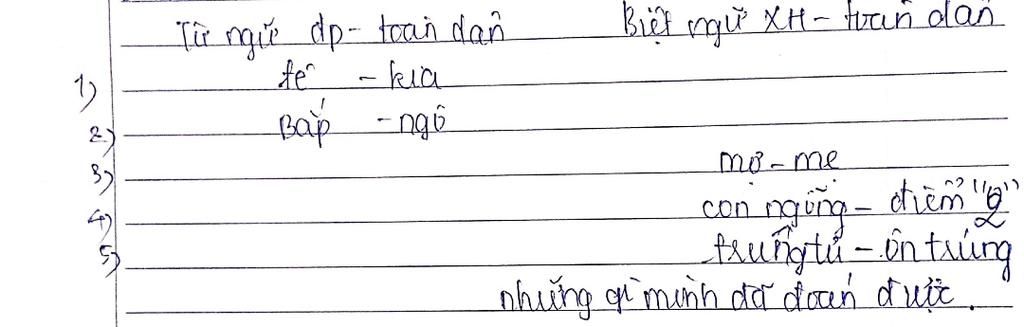 Từ ngữ dp - toàn dân Biệt ngữ XH - toàn dân
1) tê - kia
2) Bắp - ngô
3) mợ - mẹ
4) con ngỗng - điểm "2"
5) trúng tủ - ôn trúng
những gì mình đã đoán được.